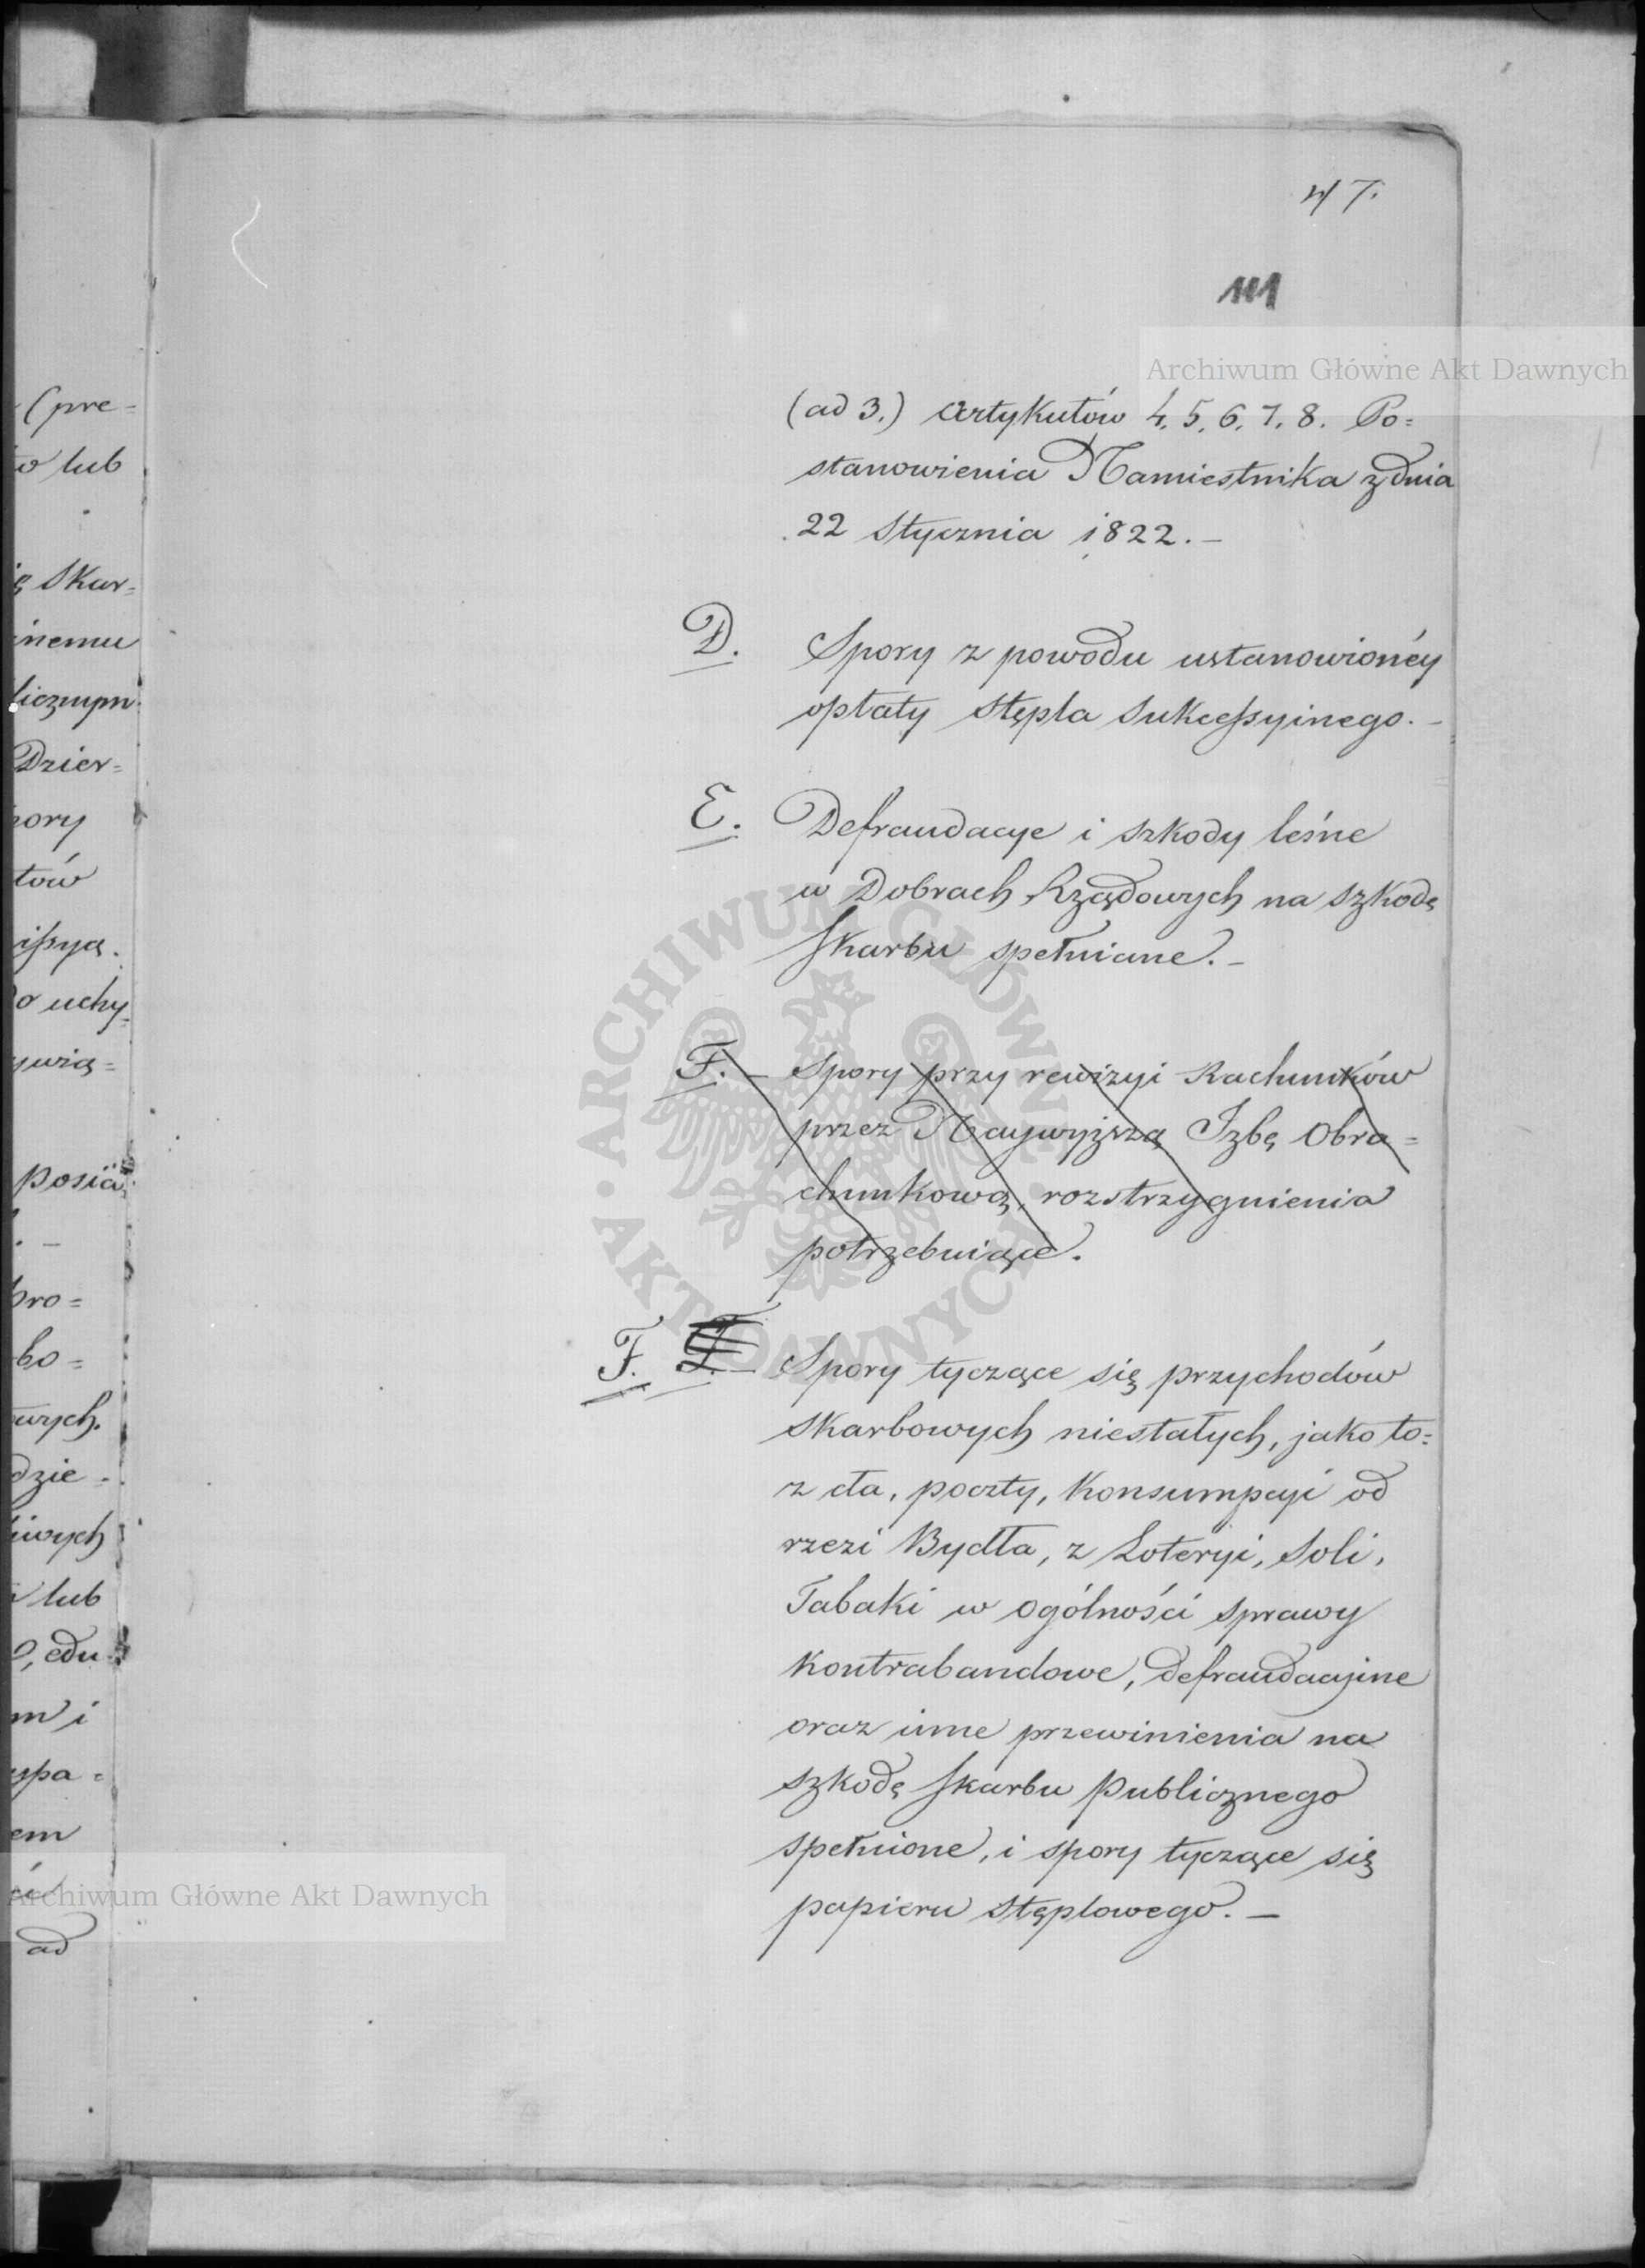 47.
111
(ad 3.) Artykułów 4, 5, 6, 7, 8. Po=
stanowienia Namiestnika z dnia
22 Stycznia 1822. –
D. Spory z powodu ustanowionéy
opłaty stępla sukcessyinego. –
E. Defraudacye i szkody leśne
w Dobrach Rządowych na szkodę
Skarbu spełniane. –
F. – Spory przy rewizyi Rachunków
przez Naywyższą Izbę Obra=
chunkową, rozstrzygnienia
potrzebuiące.
F. Spory tyczące się przychodów
skarbowych niestałych, jako to=
z cła, poczty, Konsumpcyi od
rzezi Bydła, z Loteryi, Soli,
Tabaki w ogólności sprawy
Kontrabandowe, defraudacyine
oraz inne przewinienia na
szkodę Skarbu Publicznego
spełnione, i spory tyczące się
papieru stęplowego. –
(pre=
lub
Skar=
Dzier=
tów
uchy
posia
lub
edu
i
ad
Archiwum Główne Akt Dawnych
ARCHIWUM GŁÓWNE AKT DAWNYCH
Archiwum Główne Akt Dawnych